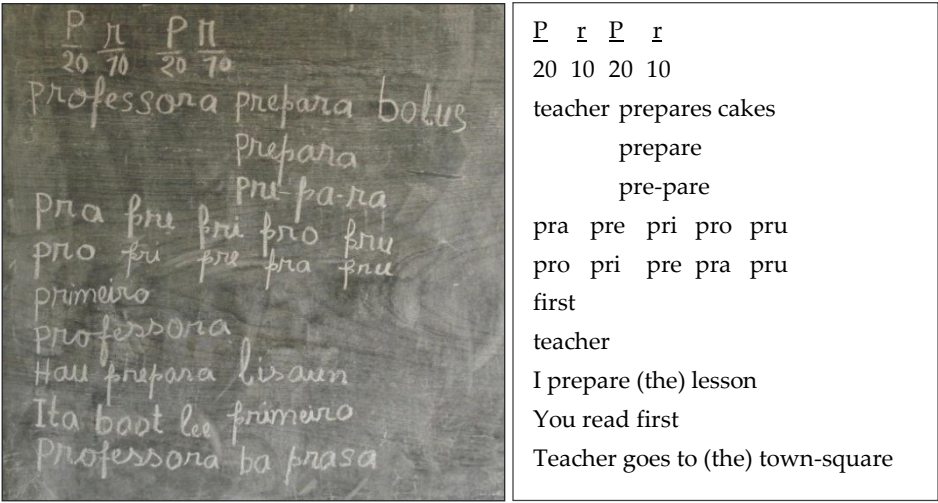 P r P r
20 10 20 10
professora prepara bolus
prepara
pre-pa-ra
pra pre pri pro pru
pro pri pre pra pru
primeiro
professora
Hau prepara lisaun
Ita boot lee primeiro
Professora ba prasa
P r P r
20 10 20 10
teacher prepares cakes
prepare
pre-pare
pra pre pri pro pru
pro pri pre pra pru
first
teacher
I prepare (the) lesson
You read first
Teacher goes to (the) town-square